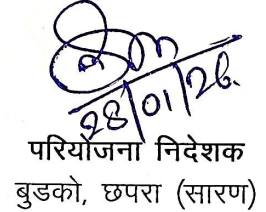 28/01/26.
परियोजना निदेशक
बुडको, छपरा (सारण)